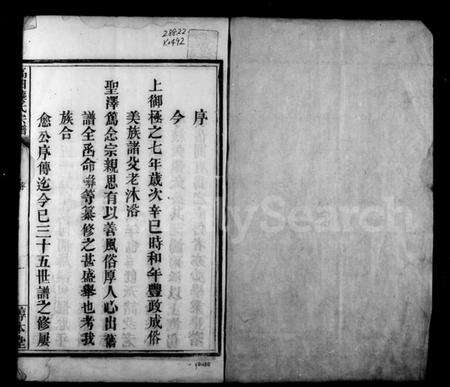 28822
K1492
序
今
上御極之七年歲次辛巳時和年豐政成俗
美族諸父老沐浴
聖澤爲念宗親思有以善風俗厚人心出舊
譜全函命 等纂修之甚盛舉也考我
族合
愈公序傳迄今已三十五世譜之修屢
敦本堂
MySearch